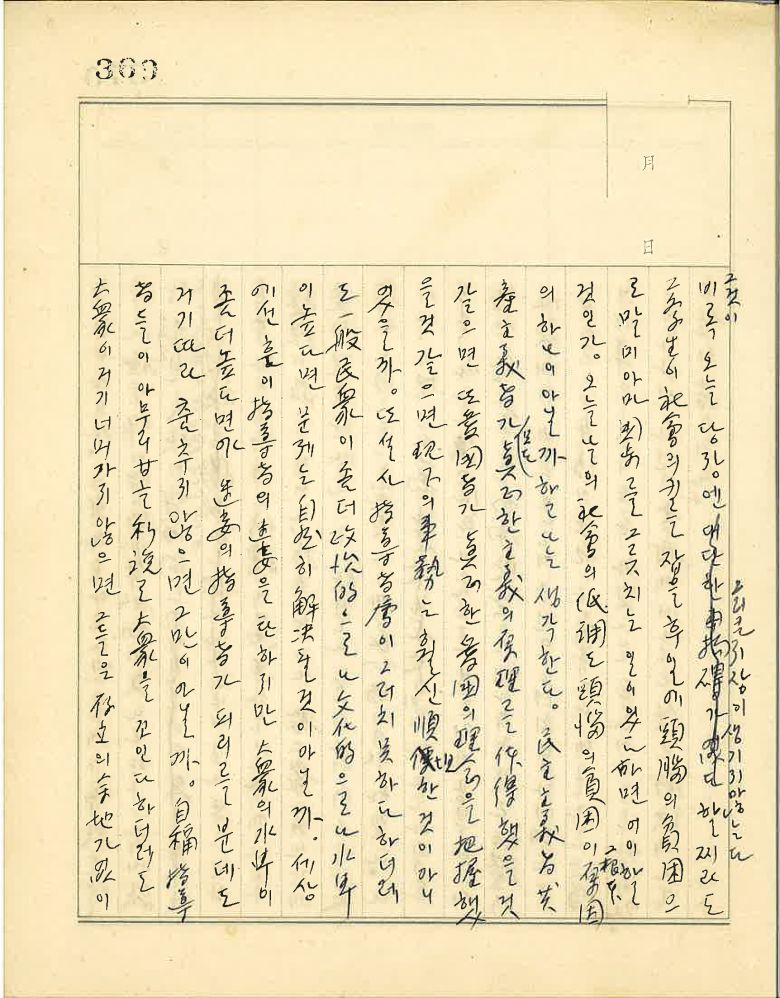 369
月
日
그것이
비록 오늘 당장엔 대단한 支障가 없다 할찌라도
우리 큰 지장이 생기지 않는다
그 学生이 社會의 키를 잡을 후일에 頭腦의 貧困으
로 말미아마 国家를 그르치는 일이 있다하면 어이할
것인가。 오늘날의 社會의 低調도 頭惱의 貧困이 原因
그 根本
의 하나이 아닐까 하고 나는 생각한다。 民主主義者 共
産主義者가 모두 眞正한 主義의 原理를 体得했을것
같으면 또 愛国者가 眞正한 愛国의 理念을 把握했
을것 같으면 現下의 事勢는 훨신 順坦한 것이 아니
였을까。 또 설사 指導者層이 그러치 못하다 하더래
도 一般民衆이 좀더 政治的으로나 文化的으로나 水準
이 높다면 문제는 自然히 解決될것이 아닐까。 세상
에선 흔이 指導者의 迷妄을 탄하지만 大衆의 水準이
좀더 높다면야 迷妄의 指導者가 피리를 분데도
거기 따라 춤추지 않으면 그만이 아닐까。 自稱 指導
者들이 아무리 甘言利說로 大衆을 꼬인다 하더래도
大衆이 거기 너머가지 않으면 그들은 存立의 余地가 없이